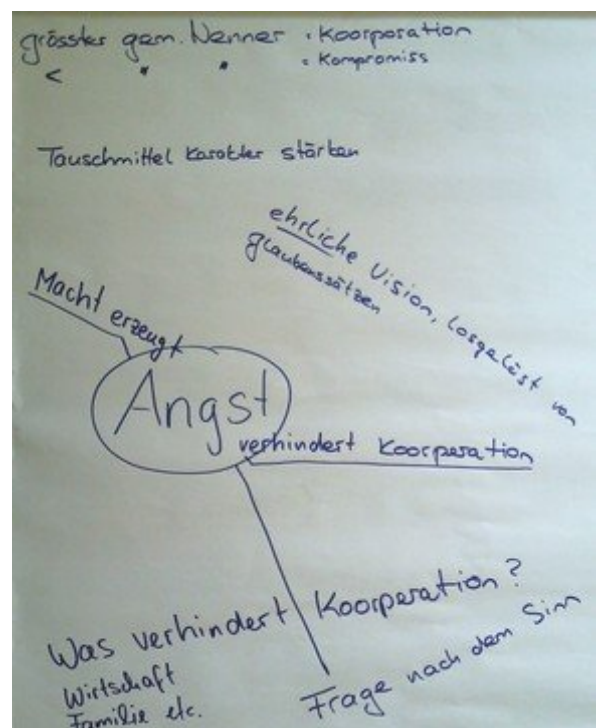 grösster gem. Nenner · Koorporation
< " " · Kompromiss
Tauschmittel Karakter stärken
ehrliche Vision, losgelöst von
glaubenssätzen
Macht erzeugt
Angst
verhindert Koorperation
Was verhindert Koorperation?
Wirtschaft
Familie etc.
Frage nach dem Sinn